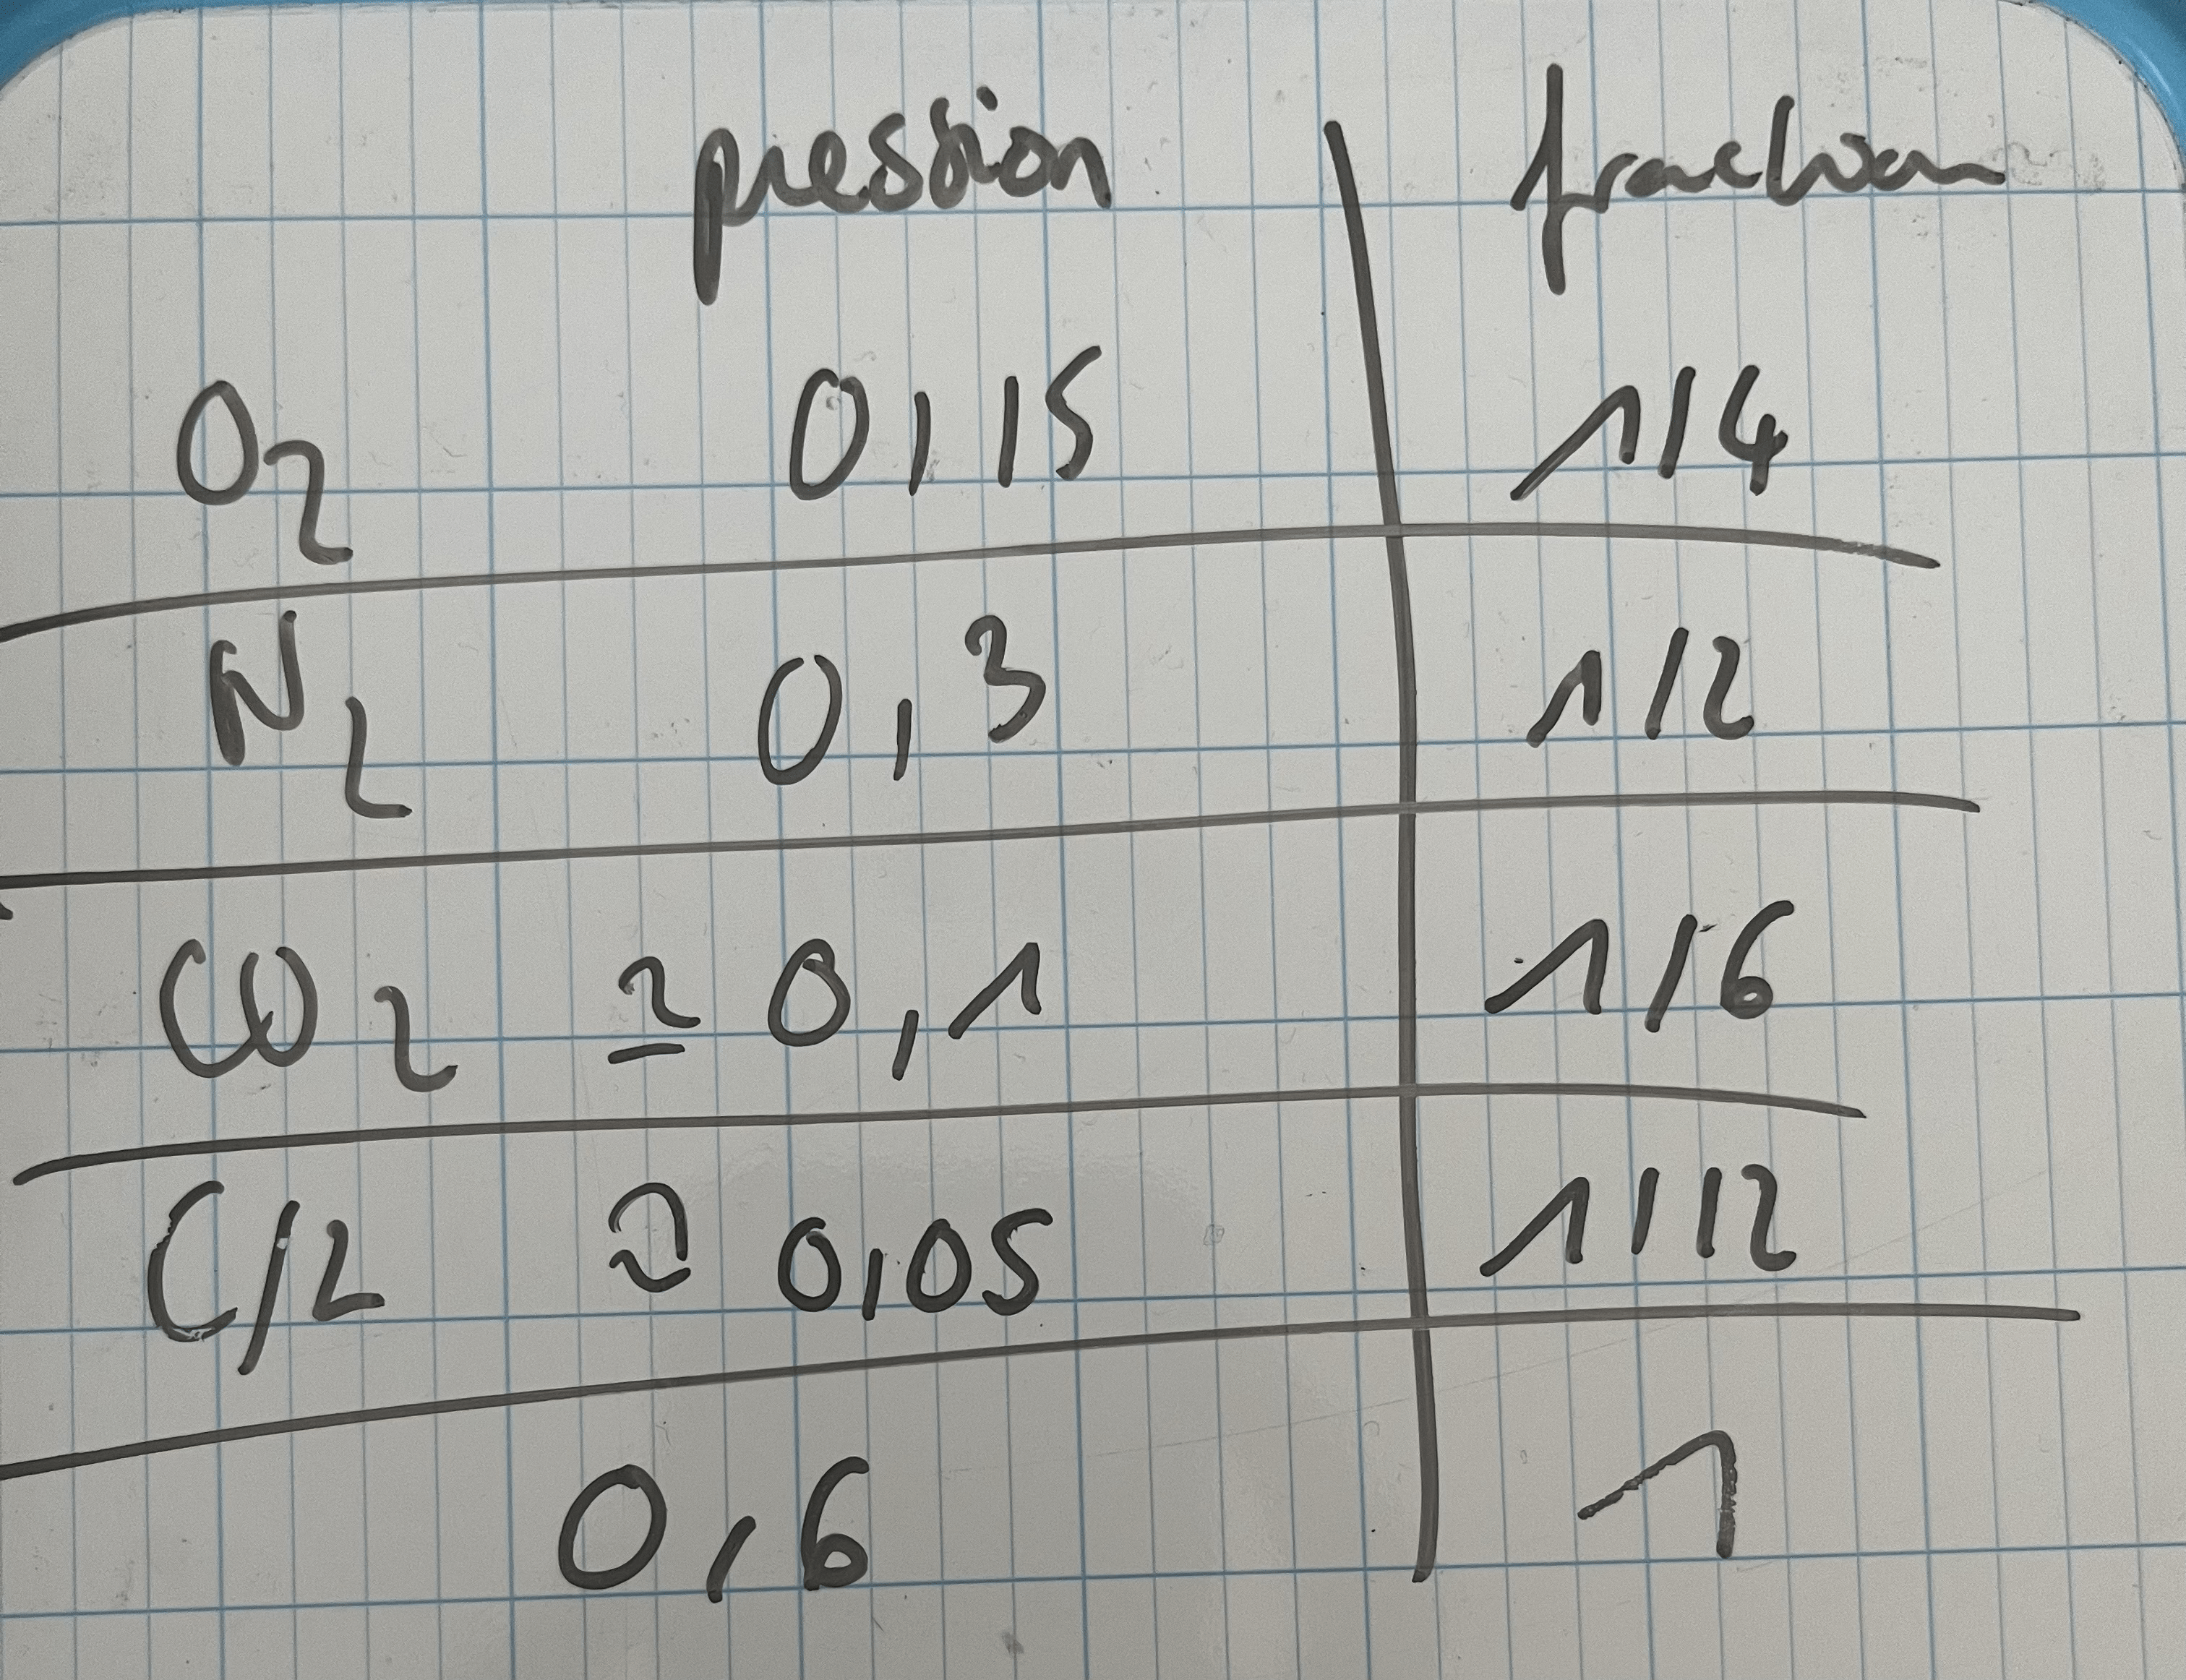 pression fraction
O2 0,15 1/4
N2 0,3 1/2
CO2 ≃ 0,1 1/6
Cl2 ≃ 0,05 1/12
0,6 1